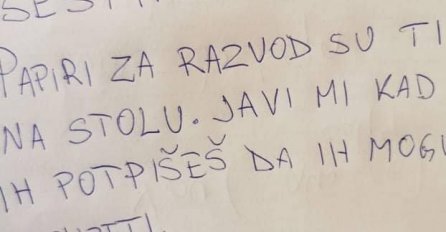 PAPIRI ZA RAZVOD SU TI
NA STOLU. JAVI MI KAD
IH POTPIŠEŠ DA IH MOGU